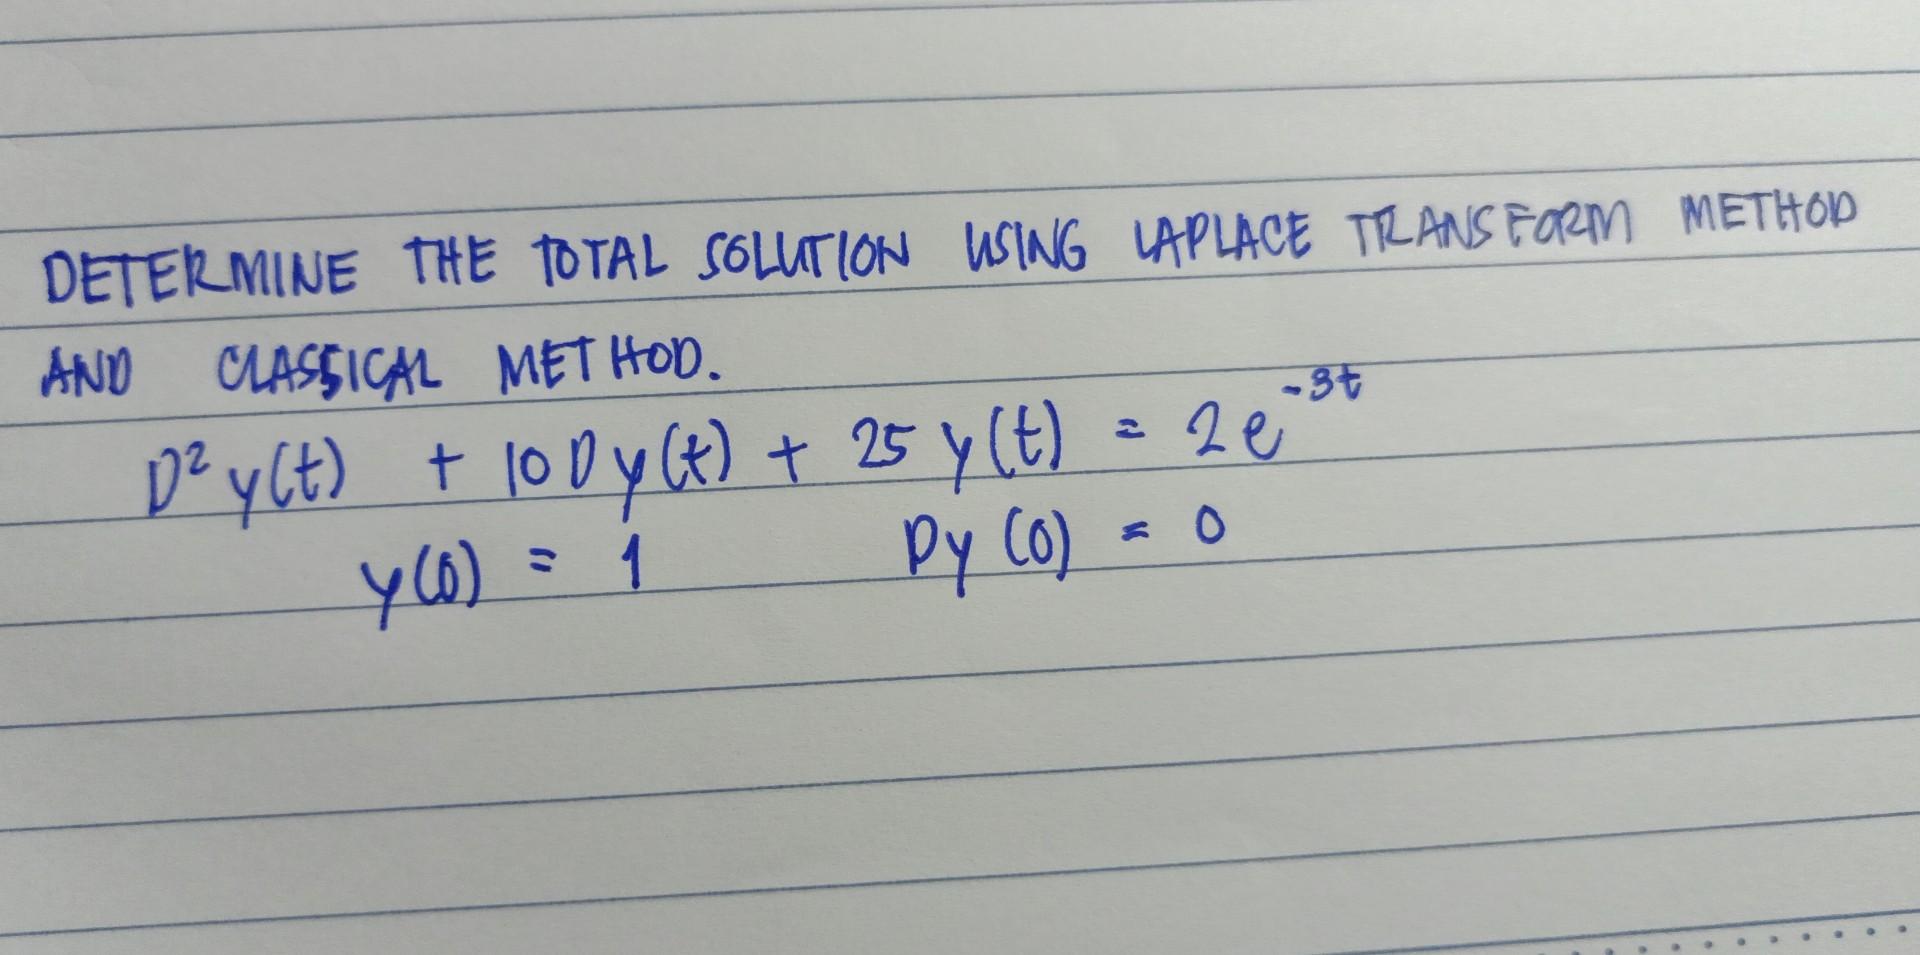 DETERMINE THE TOTAL SOLUTION USING LAPLACE TRANSFORM METHOD
AND CLASSICAL METHOD.
D² y(t) + 10 D y(t) + 25 y(t) = 2e^{-3t}
y(0) = 1 Dy(0) = 0